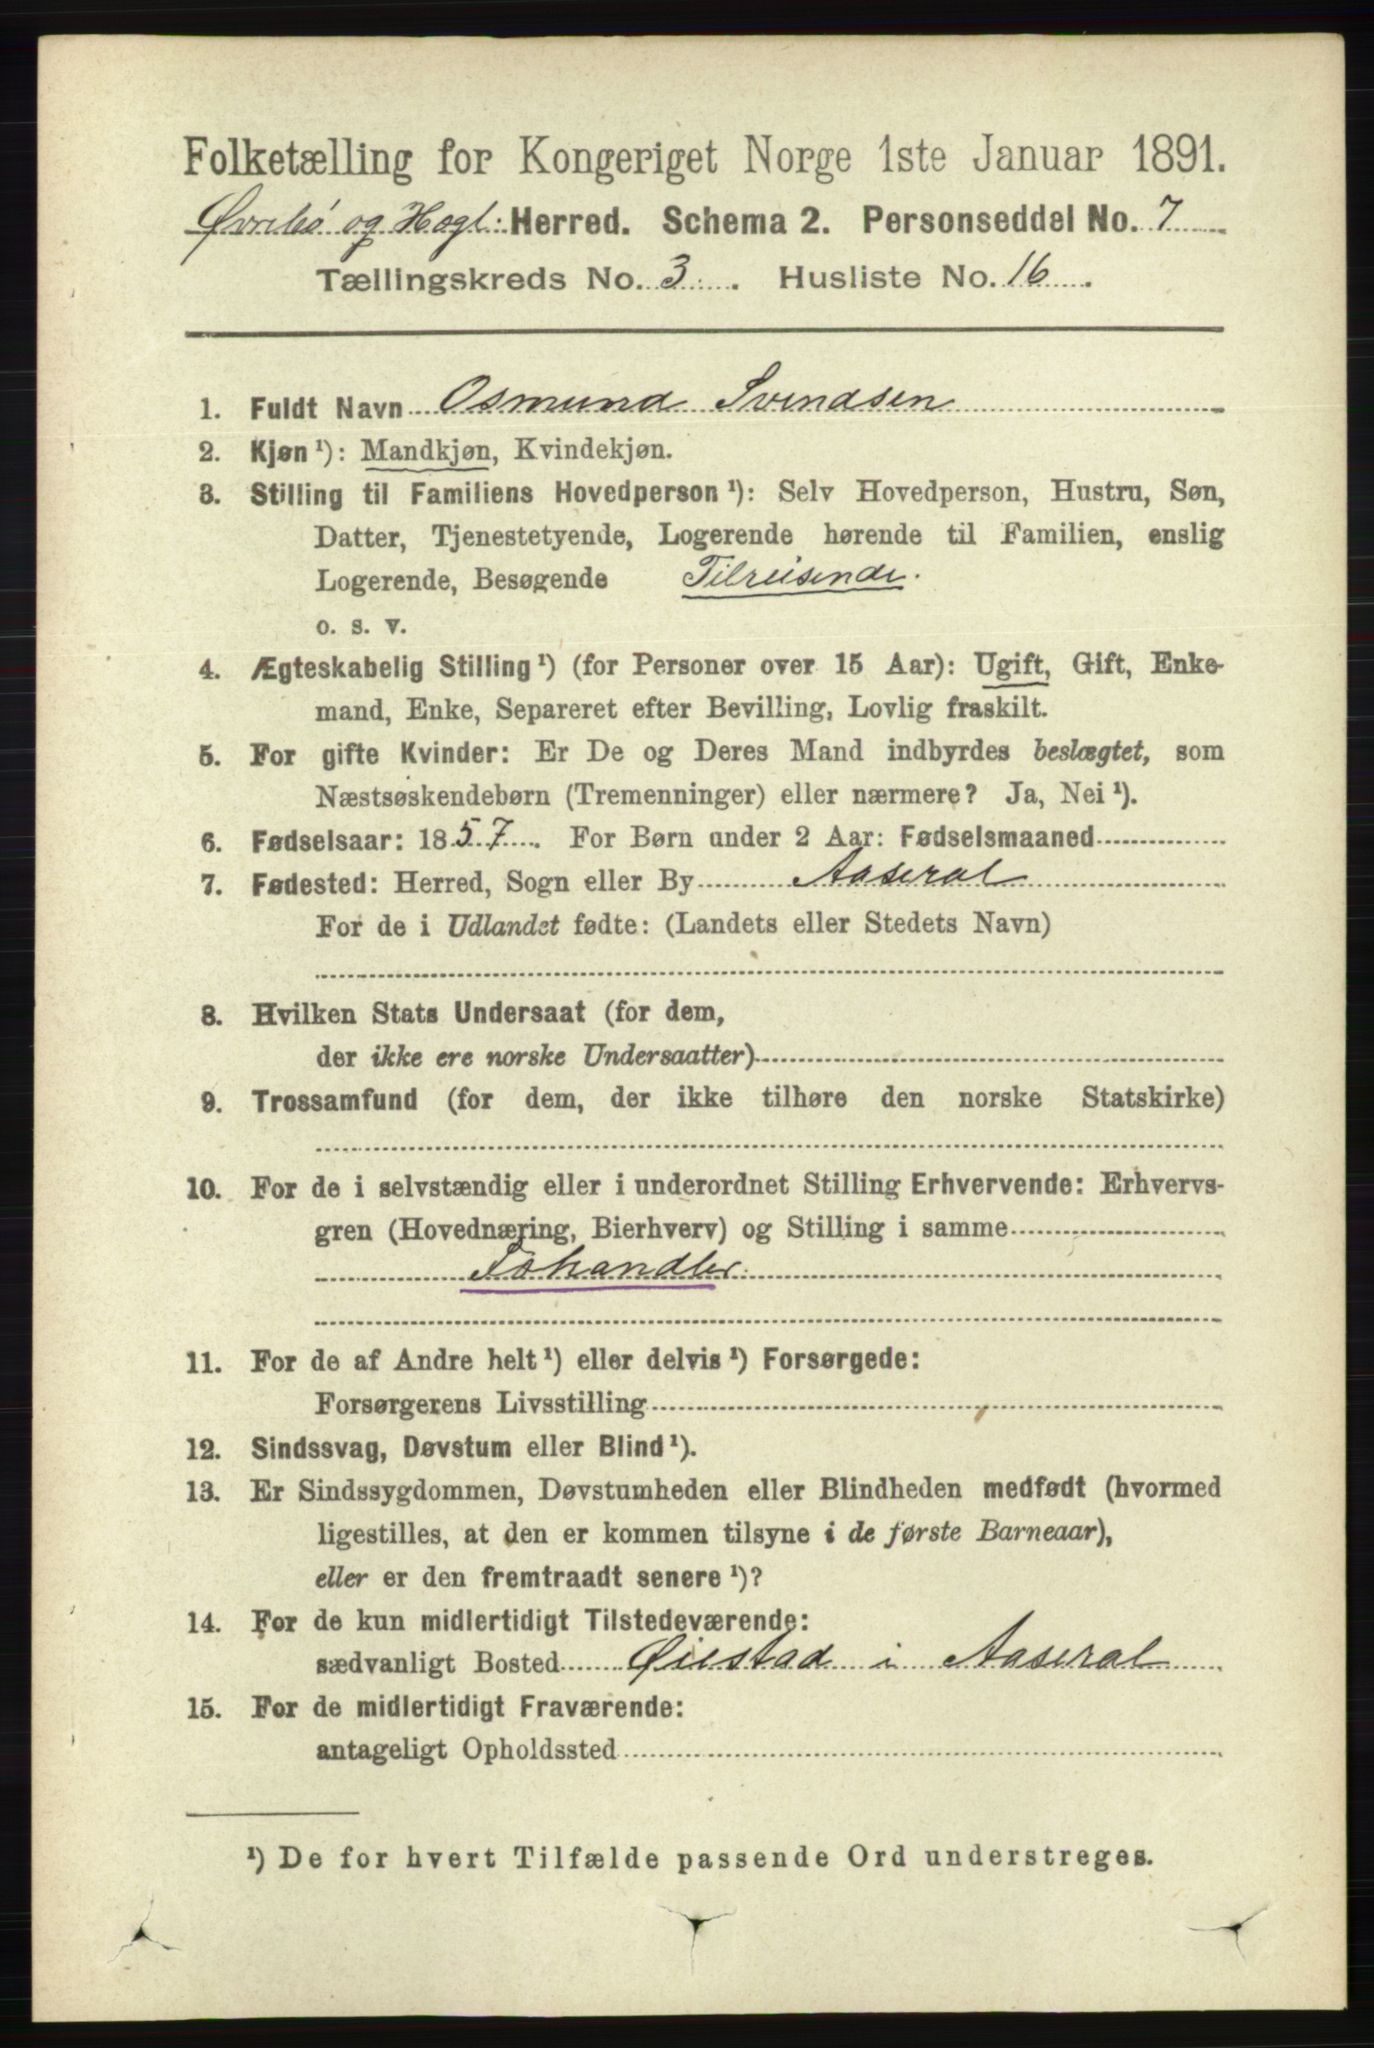 Folketælling for Kongeriget Norge 1ste Januar 1891.
Øvrebø og Hægl: Herred. Schema 2. Personseddel No. 7
Tællingskreds No. 3. Husliste No. 16.
1. Fuldt Navn Osmund Svendsen
2. Kjøn ¹): Mandkjøn, Kvindekjøn.
3. Stilling til Familiens Hovedperson ¹): Selv Hovedperson, Hustru, Søn,
Datter, Tjenestetyende, Logerende hørende til Familien, enslig
Logerende, Besøgende Tilreisende.
o. s. v.
4. Ægteskabelig Stilling ¹) (for Personer over 15 Aar): Ugift, Gift, Enke-
mand, Enke, Separeret efter Bevilling, Lovlig fraskilt.
5. For gifte Kvinder: Er De og Deres Mand indbyrdes beslægtet, som
Næstsøskendebørn (Tremenninger) eller nærmere? Ja, Nei ¹).
6. Fødselsaar: 1857. For Børn under 2 Aar: Fødselsmaaned
7. Fødested: Herred, Sogn eller By Aaseral
For de i Udlandet fødte: (Landets eller Stedets Navn)
8. Hvilken Stats Undersaat (for dem,
der ikke ere norske Undersaatter)
9. Trossamfund (for dem, der ikke tilhøre den norske Statskirke)
10. For de i selvstændig eller i underordnet Stilling Erhvervende: Erhvervs-
gren (Hovednæring, Bierhverv) og Stilling i samme
Fæhandler.
11. For de af Andre helt ¹) eller delvis ¹) Forsørgede:
Forsørgerens Livsstilling
12. Sindssvag, Døvstum eller Blind ¹).
13. Er Sindssygdommen, Døvstumheden eller Blindheden medfødt (hvormed
ligestilles, at den er kommen tilsyne i de første Barneaar),
eller er den fremtraadt senere ¹)?
14. For de kun midlertidigt Tilstedeværende:
sædvanligt Bosted Øiestad i Aaseral
15. For de midlertidigt Fraværende:
antageligt Opholdssted
¹) De for hvert Tilfælde passende Ord understreges.